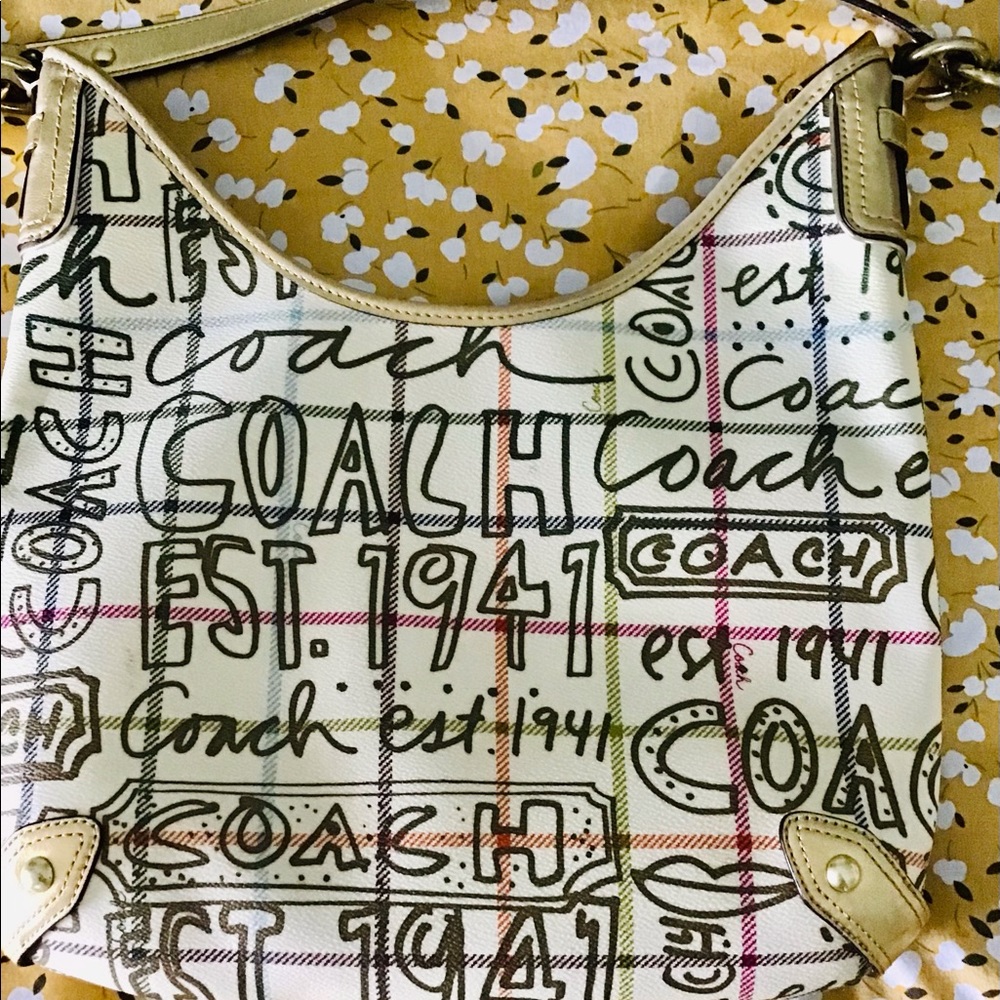 est. 19
COACH
coach
Coac
COACH
COACH
Coach e
EST. 1941
COACH
est 1941
Coach
Coach est. 1941
COAC
COACH
EST 1941